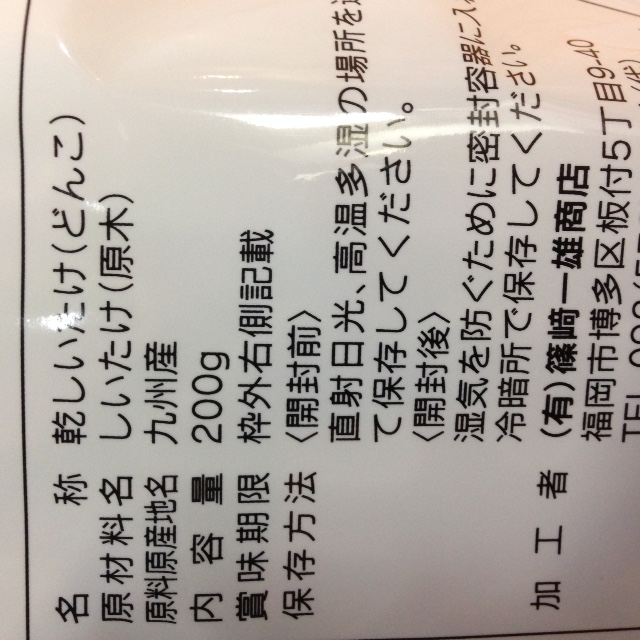 名称 乾しいたけ(どんこ)
原材料名 しいたけ(原木)
原料原産地名 九州産
内容量 200g
賞味期限 枠外右側記載
保存方法 〈開封前〉
直射日光、高温多湿の場所を
て保存してください。
〈開封後〉
湿気を防ぐために密封容器に入
冷暗所で保存してください。
加工者 (有)篠﨑一雄商店
福岡市博多区板付5丁目9-40
TEL